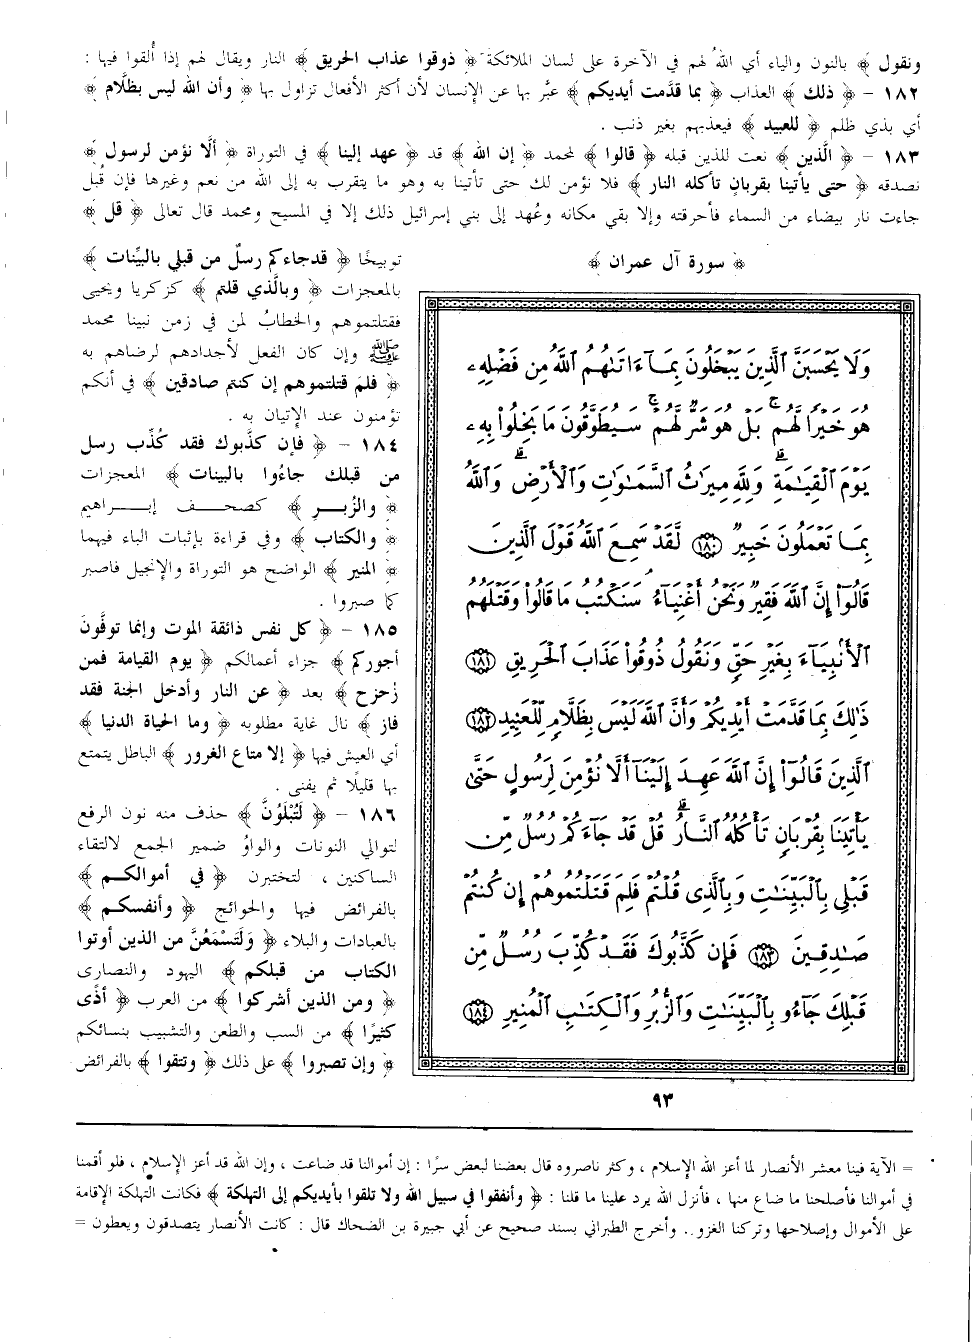 ونقول ﴾ بالنون والياء أي اللهُ لهم في الآخرة على لسان الملائكة ﴿ ذوقوا عذاب الحريق ﴾ النار ويقال لهم إذا أُلقوا فيها :
١٨٢ – ﴿ ذلك ﴾ العذاب ﴿ بما قدَّمت أيديكم ﴾ عبَّر بها عن الإنسان لأن أكثر الأفعال تزاول بها ﴿ وأن الله ليس بظلَّام ﴾
أي بذي ظلم ﴿ للعبيد ﴾ فيعذبهم بغير ذنب .
١٨٣ – ﴿ الَّذين ﴾ نعت للذين قبله ﴿ قالوا ﴾ لمحمد ﴿ إن الله ﴾ قد ﴿ عهد إلينا ﴾ في التوراة ﴿ ألَّا نؤمن لرسول ﴾
نصدقه ﴿ حتى يأتينا بقربانٍ تأكله النار ﴾ فلا نؤمن لك حتى تأتينا به وهو ما يتقرب به إلى الله من نعم وغيرها فإن قُبل
جاءت نار بيضاء من السماء فأحرقته وإلا بقي مكانه وعُهد إلى بني إسرائيل ذلك إلا في المسيح ومحمد قال تعالى ﴿ قل ﴾
توبيخًا ﴿ قد جاءكم رسلٌ من قبلي بالبيِّنات ﴾
بالمعجزات ﴿ وبالَّذي قلتم ﴾ كزكريا ويحيى
فقتلتموهم والخطابُ لمن في زمن نبينا محمد
ﷺ وإن كان الفعل لأجدادهم لرضاهم به
﴿ فلم قتلتموهم إن كنتم صادقين ﴾ في أنكم
تؤمنون عند الإتيان به .
١٨٤ – ﴿ فإن كذَّبوك فقد كُذِّب رسل
من قبلك جاءُوا بالبينات ﴾ المعجزات
﴿ والزُّبر ﴾ كصحف إبراهيم
﴿ والكتاب ﴾ وفي قراءة بإثبات الباء فيهما
﴿ المنير ﴾ الواضح هو التوراة والإنجيل فاصبر
كما صبروا .
١٨٥ – ﴿ كل نفس ذائقة الموت وإنما توفَّون
أجوركم ﴾ جزاء أعمالكم ﴿ يوم القيامة فمن
زُحزح ﴾ بعد ﴿ عن النار وأدخل الجنة فقد
فاز ﴾ نال غاية مطلوبه ﴿ وما الحياة الدنيا ﴾
أي العيش فيها ﴿ إلا متاع الغرور ﴾ الباطل يتمتع
بها قليلًا ثم يفنى .
١٨٦ – ﴿ لَتُبْلَوُنَّ ﴾ حذف منه نون الرفع
لتوالي النونات والواوُ ضمير الجمع لالتقاء
الساكنين ، لتختبرن ﴿ في أموالكم ﴾
بالفرائض فيها والحوائج ﴿ وأنفسكم ﴾
بالعبادات والبلاء ﴿ وَلَتَسْمَعُنَّ من الذين أوتوا
الكتاب من قبلكم ﴾ اليهود والنصارى
﴿ ومن الذين أشركوا ﴾ من العرب ﴿ أذًى
كثيرًا ﴾ من السب والطعن والتشبيب بنسائكم
﴿ وإن تصبروا ﴾ على ذلك ﴿ وتتقوا ﴾ بالفرائض
﴿ سورة آل عمران ﴾
وَلَا يَحْسَبَنَّ ٱلَّذِينَ يَبْخَلُونَ بِمَآ ءَاتَىٰهُمُ ٱللَّهُ مِن فَضْلِهِۦ
هُوَ خَيْرًا لَّهُم بَلْ هُوَ شَرٌّ لَّهُمْ سَيُطَوَّقُونَ مَا بَخِلُوا۟ بِهِۦ
يَوْمَ ٱلْقِيَـٰمَةِ وَلِلَّهِ مِيرَٰثُ ٱلسَّمَـٰوَٰتِ وَٱلْأَرْضِ وَٱللَّهُ
بِمَا تَعْمَلُونَ خَبِيرٌ ١٨٠ لَّقَدْ سَمِعَ ٱللَّهُ قَوْلَ ٱلَّذِينَ
قَالُوٓا۟ إِنَّ ٱللَّهَ فَقِيرٌ وَنَحْنُ أَغْنِيَآءُ سَنَكْتُبُ مَا قَالُوا۟ وَقَتْلَهُمُ
ٱلْأَنۢبِيَآءَ بِغَيْرِ حَقٍّ وَنَقُولُ ذُوقُوا۟ عَذَابَ ٱلْحَرِيقِ ١٨١
ذَٰلِكَ بِمَا قَدَّمَتْ أَيْدِيكُمْ وَأَنَّ ٱللَّهَ لَيْسَ بِظَلَّامٍ لِّلْعَبِيدِ ١٨٢
ٱلَّذِينَ قَالُوٓا۟ إِنَّ ٱللَّهَ عَهِدَ إِلَيْنَآ أَلَّا نُؤْمِنَ لِرَسُولٍ حَتَّىٰ
يَأْتِيَنَا بِقُرْبَانٍ تَأْكُلُهُ ٱلنَّارُ قُلْ قَدْ جَآءَكُمْ رُسُلٌ مِّن
قَبْلِي بِٱلْبَيِّنَـٰتِ وَبِٱلَّذِى قُلْتُمْ فَلِمَ قَتَلْتُمُوهُمْ إِن كُنتُمْ
صَـٰدِقِينَ ١٨٣ فَإِن كَذَّبُوكَ فَقَدْ كُذِّبَ رُسُلٌ مِّن
قَبْلِكَ جَآءُو بِٱلْبَيِّنَـٰتِ وَٱلزُّبُرِ وَٱلْكِتَـٰبِ ٱلْمُنِيرِ ١٨٤
٩٣
= الآية فينا معشر الأنصار لما أعز الله الإسلام ، وكثر ناصروه قال بعضنا لبعض سرًا : إن أموالنا قد ضاعت ، وإن الله قد أعز الإسلام ، فلو أقمنا
في أموالنا فأصلحنا ما ضاع منها ، فأنزل الله يرد علينا ما قلنا : ﴿ وأنفقوا في سبيل الله ولا تلقوا بأيديكم إلى التهلكة ﴾ فكانت التهلكة الإقامة
على الأموال وإصلاحها وتركنا الغزو.. وأخرج الطبراني بسند صحيح عن أبي جبيرة بن الضحاك قال : كانت الأنصار يتصدقون ويعطون =